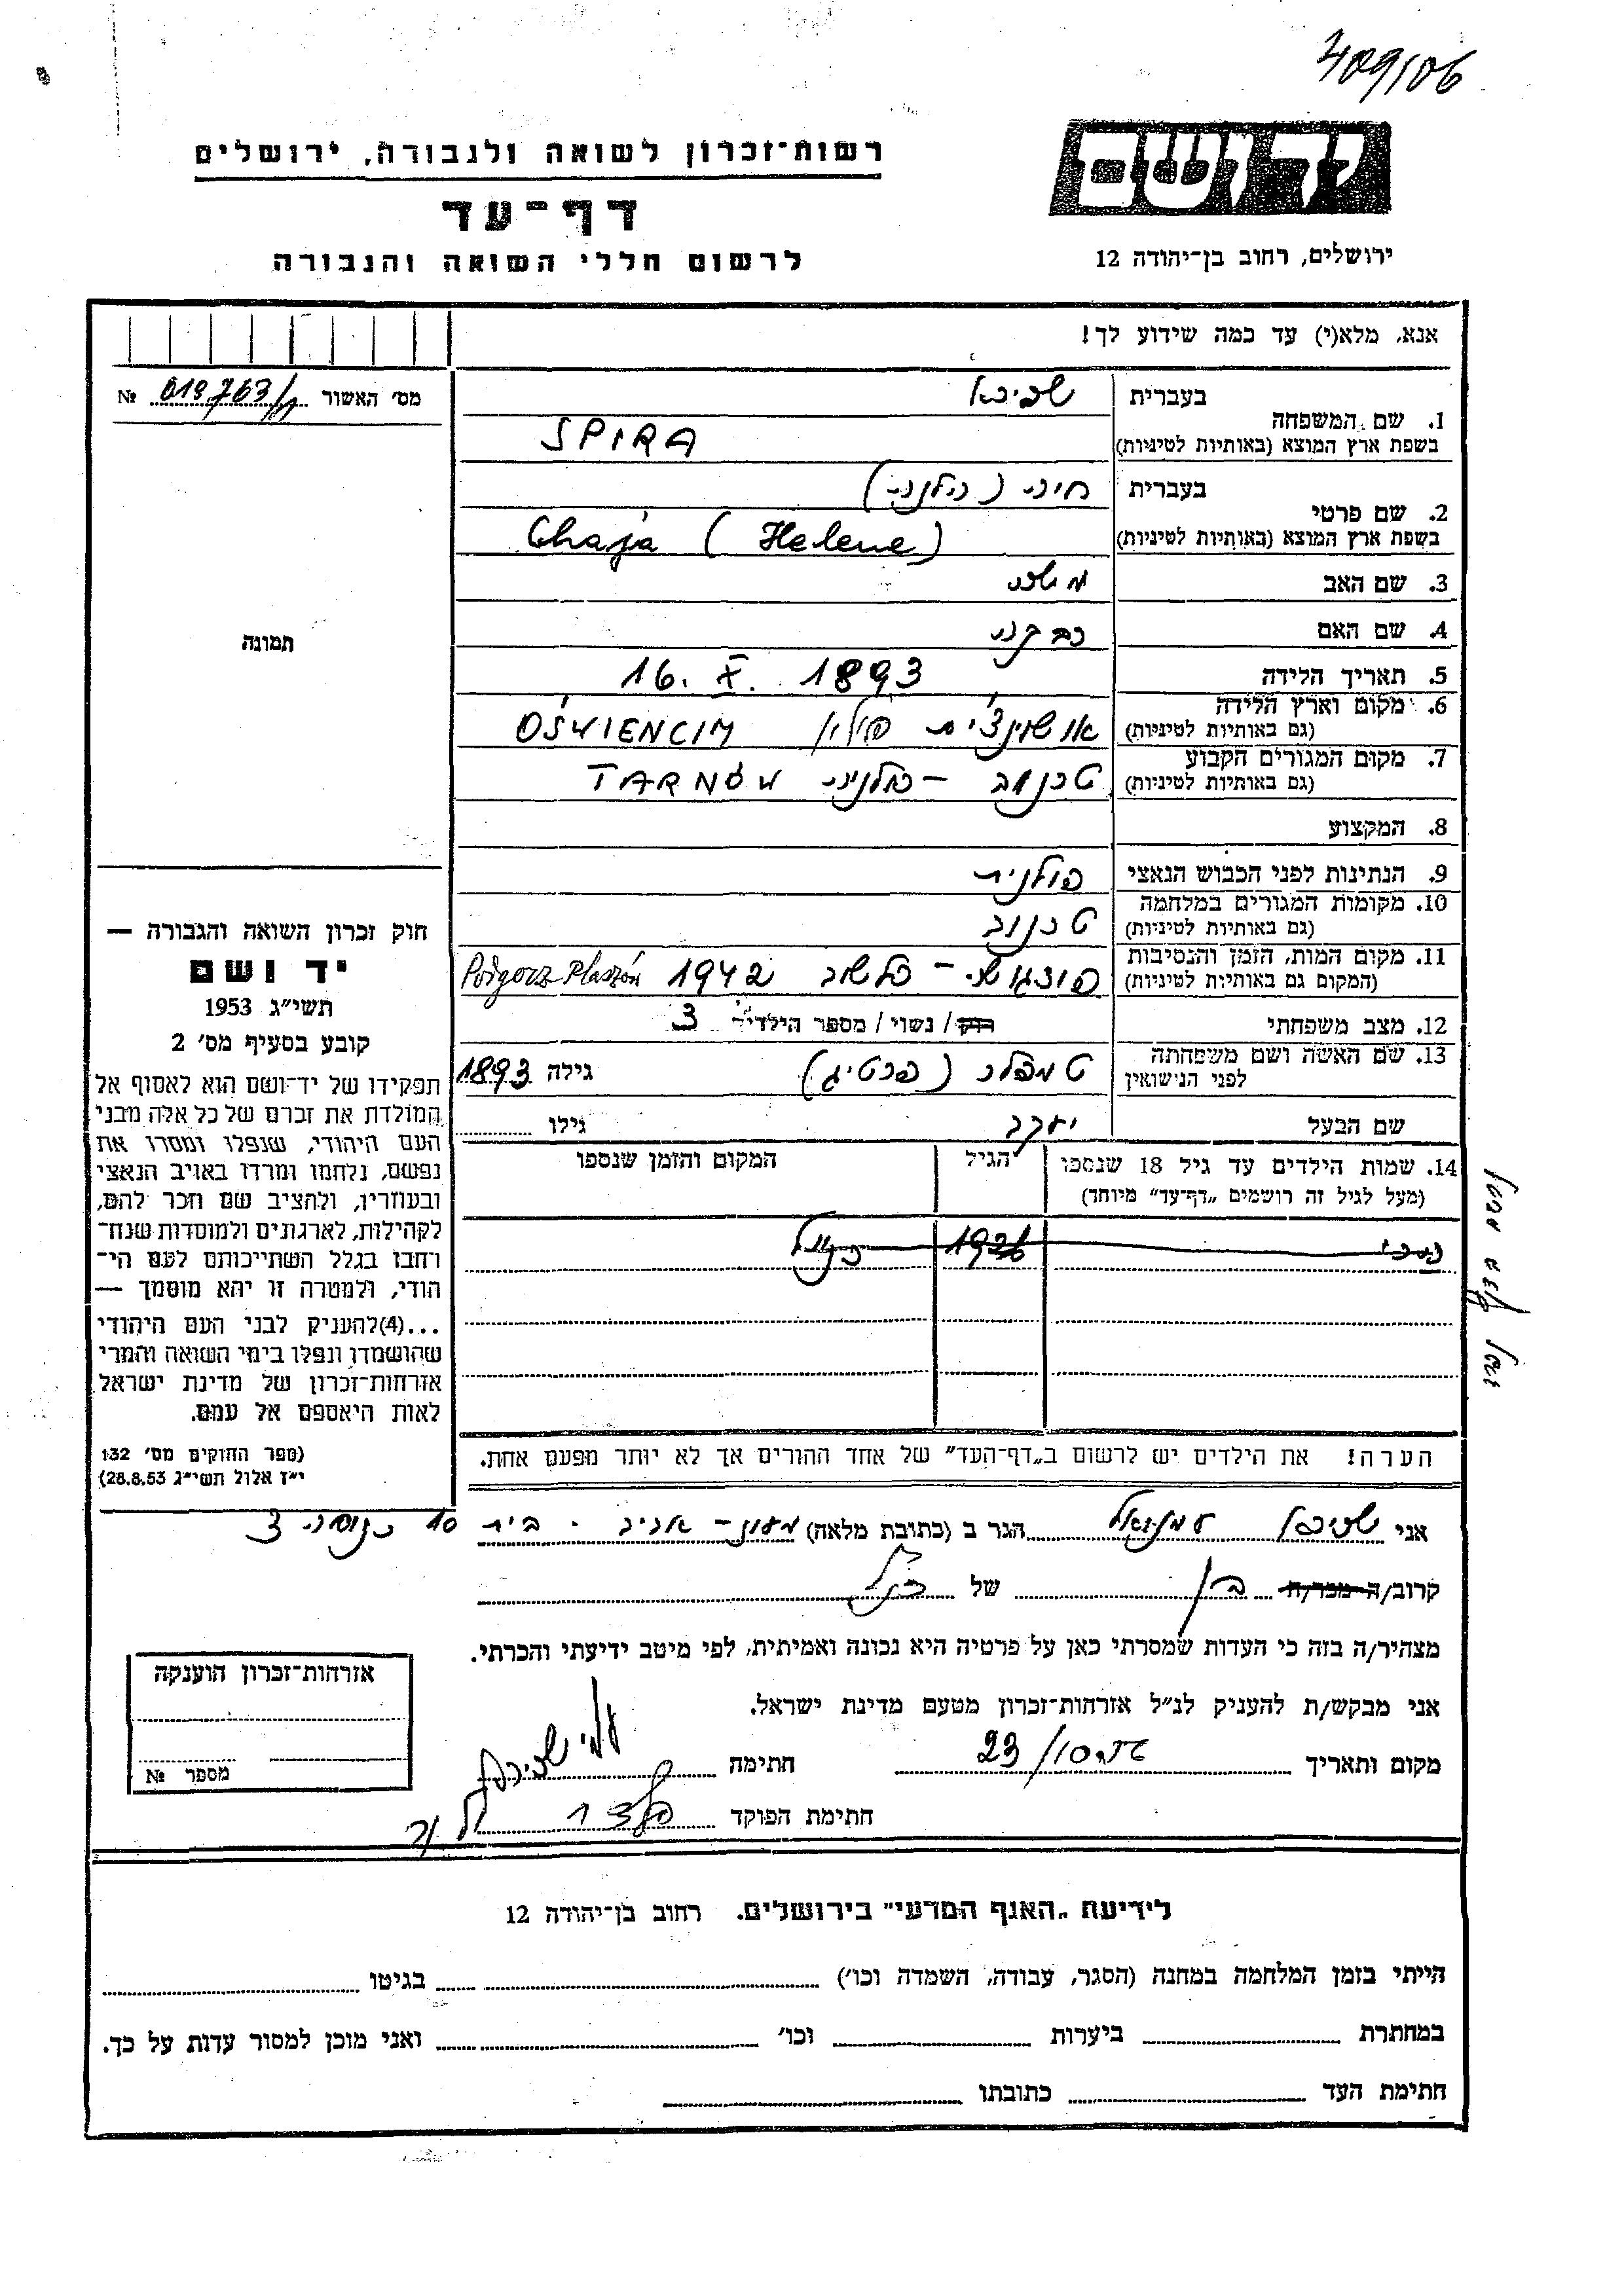 409/06
רשות־זכרון לשואה ולגבורה, ירושלים
דף־עד
לרשום חללי השואה והגבורה
יד ושם
ירושלים, רחוב בן־יהודה 12
אנא, מלא(י) עד כמה שידוע לך!
מס׳ האשור 019763/ №
1. שם המשפחה
בעברית שפירא
בשפת ארץ המוצא (באותיות לטיניות) SPIRA
2. שם פרטי
בעברית חיה (הלנה)
בשפת ארץ המוצא (באותיות לטיניות) Chaja (Helene)
3. שם האב משה
4. שם האם רבקה
5. תאריך הלידה 16. X. 1893
6. מקום וארץ הלידה
(גם באותיות לטיניות) פולין OŚWIENCIM
7. מקום המגורים הקבוע
(גם באותיות לטיניות) טרנוב – TARNÓW
8. המקצוע
9. הנתינות לפני הכבוש הנאצי פולנית
10. מקומות המגורים במלחמה
(גם באותיות לטיניות) טרנוב
11. מקום המות, הזמן והנסיבות
(המקום גם באותיות לטיניות) פלשוב 1942 Podgorz Plaszów
12. מצב משפחתי רוק / נשוי / מספר הילדים 3
13. שם האשה ושם משפחתה
לפני הנישואין טמפלר גילה 1893
שם הבעל יעקב גילו
14. שמות הילדים עד גיל 18 שנספו
(מעל לגיל זה רושמים „דף־עד״ מיוחד)
הגיל
המקום והזמן שנספו
הערה! את הילדים יש לרשום ב„דף־העד״ של אחד ההורים אך לא יותר מפעם אחת.
תמונה
חוק זכרון השואה והגבורה —
יד ושם
תשי״ג 1953
קובע בסעיף מס׳ 2
תפקידו של יד־ושם הוא לאסוף אל
המולדת את זכרם של כל אלה מבני
העם היהודי, שנפלו ומסרו את
נפשם, נלחמו ומרדו באויב הנאצי
ובעוזריו, ולהציב שם וזכר להם,
לקהילות, לארגונים ולמוסדות שנח־
רחבו בגלל השתייכותם לעם הי־
הודי, ולמטרה זו יהא מוסמך —
...(4)להעניק לבני העם היהודי
שהושמדו ונפלו בימי השואה והמרי
אזרחות־זכרון של מדינת ישראל
לאות היאספם אל עמם.
(ספר החוקים מס׳ 132
י״ז אלול תשי״ג 28.8.53)
אני שפירא עמנואל הגר ב (כתובת מלאה) מעון־אביב. בית 10 כניסה 3
קרוב/ה מכר/ה בן של הנ״ל
מצהיר/ה בזה כי העדות שמסרתי כאן על פרטיה היא נכונה ואמיתית, לפי מיטב ידיעתי והכרתי.
אני מבקש/ת להעניק לנ״ל אזרחות־זכרון מטעם מדינת ישראל.
מקום ותאריך 23/ חתימה
חתימת הפוקד
אזרחות־זכרון הוענקה
מספר №
לידיעת „האגף המדעי״ בירושלים, רחוב בן־יהודה 12
הייתי בזמן המלחמה במחנה (הסגר, עבודה, השמדה וכו׳) בגיטו
במחתרת ביערות וכו׳ ואני מוכן למסור עדות על כך.
חתימת העד כתובתו